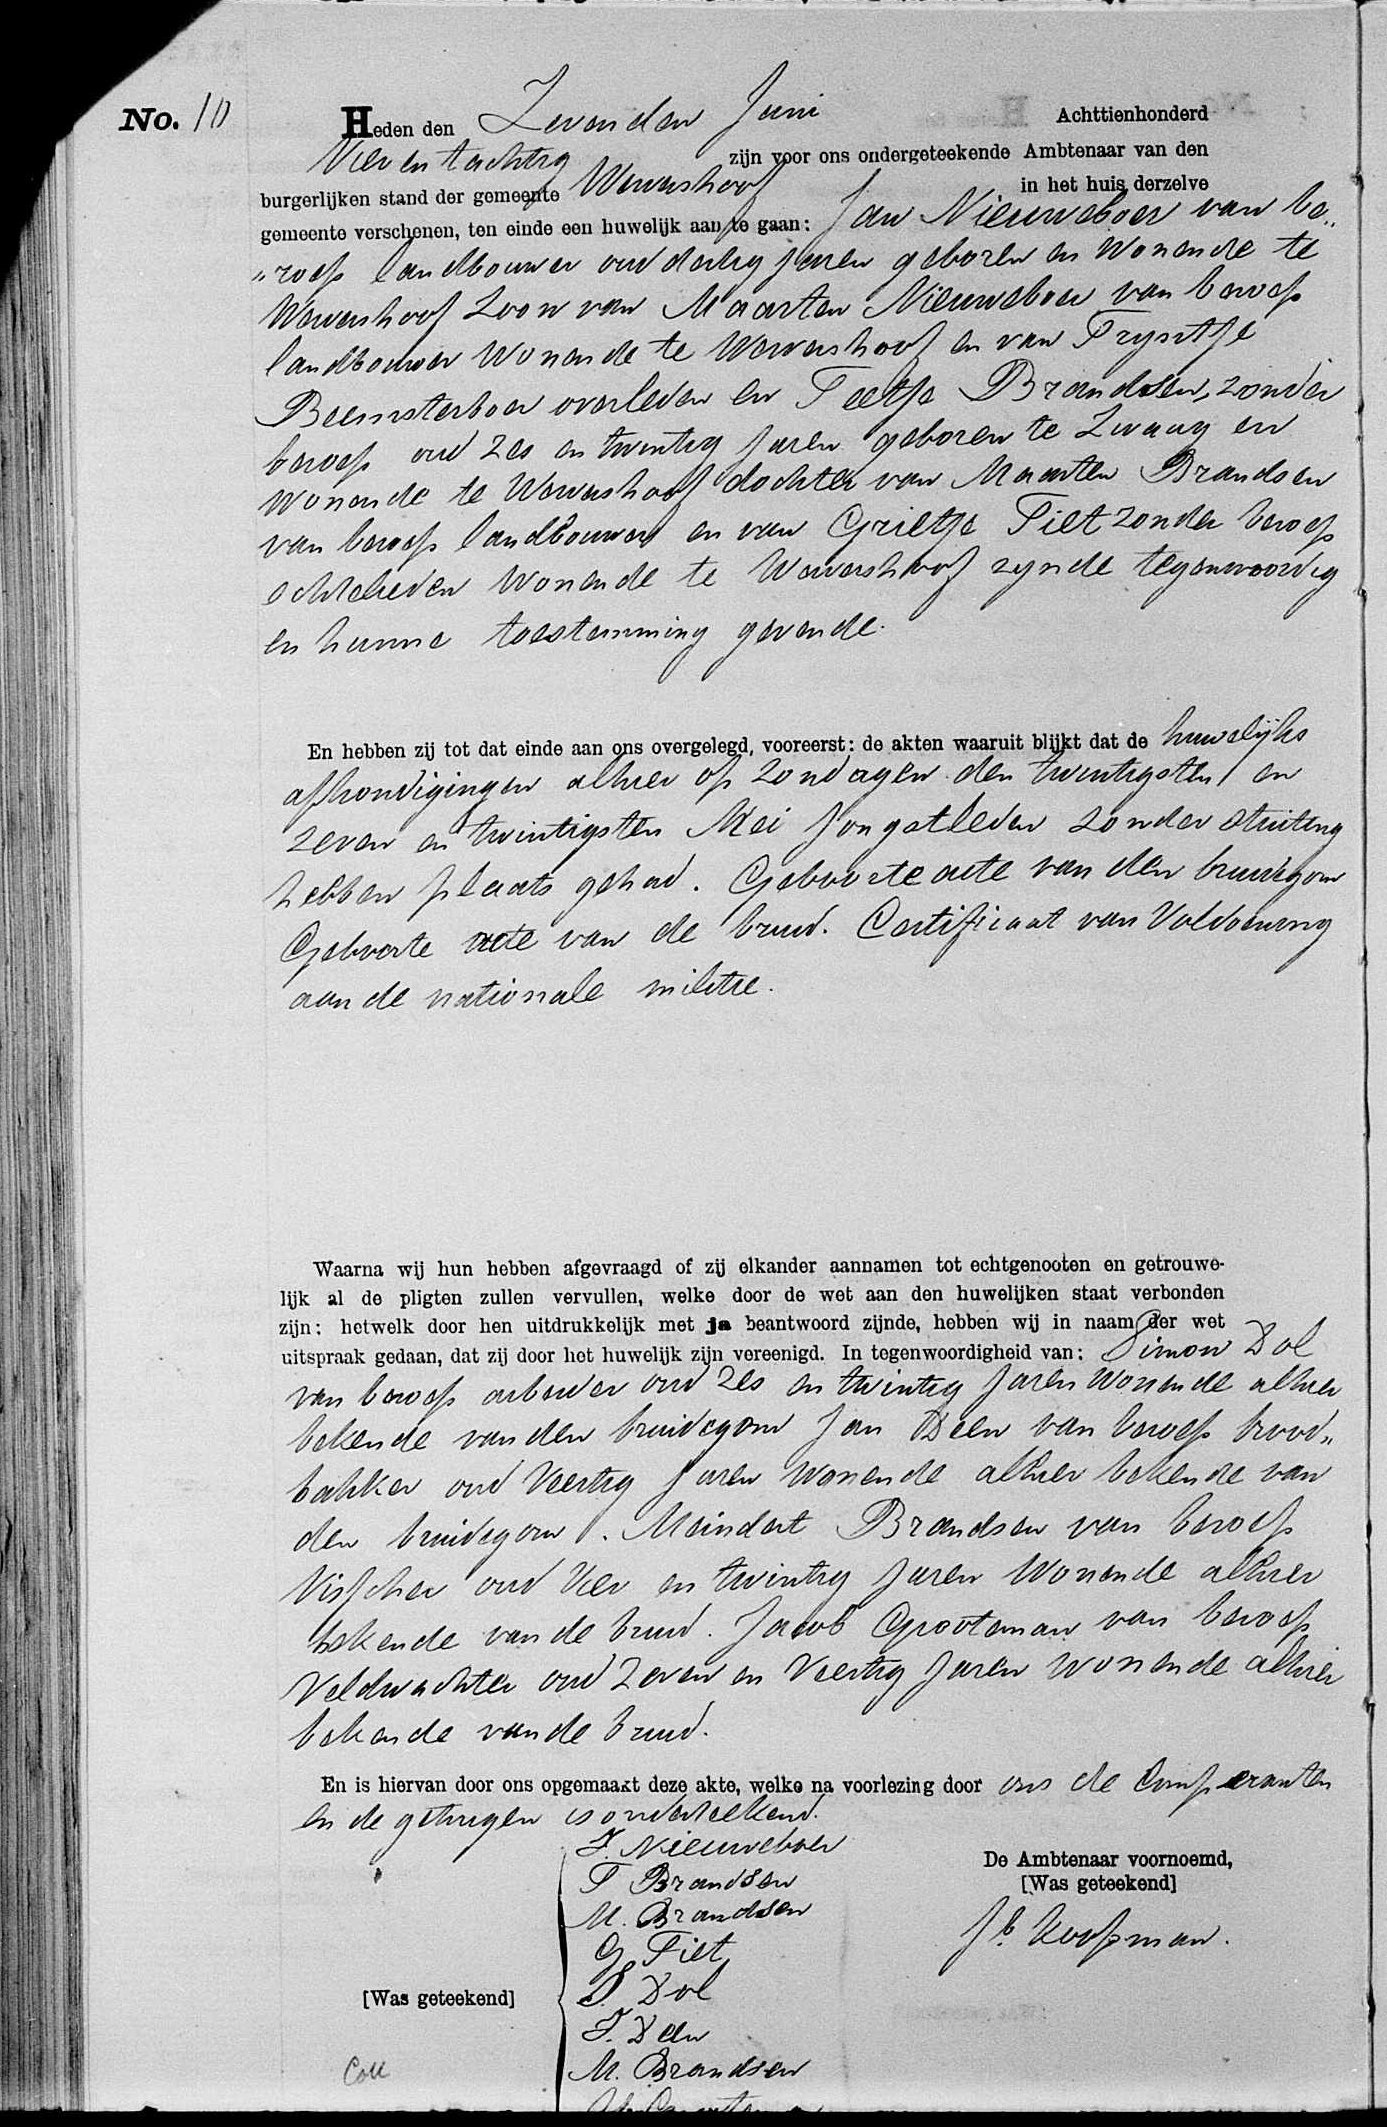 No. 10
Heden den Zevenden Juni Achttienhonderd
Vier en tachtig zijn voor ons ondergeteekende Ambtenaar van den
burgerlijken stand der gemeente Wervershoof in het huis derzelve
gemeente verschenen, ten einde een huwelijk aan te gaan: Jan Nieuweboer van be„
„roep landbouwer oud dertig jaren geboren en Wonende te
Wervershoof Zoon van Maarten Nieuweboer van beroep
landbouwer Wonende te Wervershoof en van Trijntje
Beemsterboer overleden en Teetje Brandsen, zonder
beroep oud Zes en twintig Jaren geboren te Zwaag en
Wonende te Wervershoof dochter van Maarten Brandsen
van beroep landbouwer en van Grietje Tiet zonder beroep
echtelieden Wonende te Wervershoof zijnde tegenwoordig
en hunne toestemming gevende.
En hebben zij tot dat einde aan ons overgelegd, vooreerst: de akten waaruit blijkt dat de huwelijks
afkondigingen alhier op Zondagen den twintigsten en
zeven en twintigsten Mei Jongstleden zonder stuiting
hebben plaats gehad. Geboorte acte van den bruidegom
Geboorte acte van de bruid. Certificaat van Voldoening
aan de nationale militie.
Waarna wij hun hebben afgevraagd of zij elkander aannamen tot echtgenooten en getrouwe-
lijk al de pligten zullen vervullen, welke door de wet aan den huwelijken staat verbonden
zijn: hetwelk door hen uitdrukkelijk met ja beantwoord zijnde, hebben wij in naam der wet
uitspraak gedaan, dat zij door het huwelijk zijn vereenigd. In tegenwoordigheid van: Simon Dol
van beroep arbeider oud Zes en twintig Jaren Wonende alhier
bekende van den bruidegom Jan Deen van beroep brood„
bakker oud Veertig Jaren Wonende alhier bekende van
den bruidegom. Meindert Brandsen van beroep
Visscher oud Vier en twintig Jaren Wonende alhier
bekende van de bruid. Jacob Grooteman van beroep
Veldwachter oud Zeven en Veertig Jaren Wonende alhier
bekende van de bruid.
En is hiervan door ons opgemaakt deze akte, welke na voorlezing door ons de Comparanten
en de getuigen is onderteekend.
J. Nieuweboer
T Brandsen
M. Brandsen
G Tiet
S. Dol
J. Deen
M. Brandsen
[Was geteekend]
De Ambtenaar voornoemd,
[Was geteekend]
Jb. Koopman.
Coll